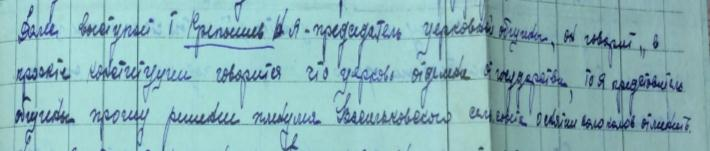 Далее выступает т Крепышев А - председатель церковной общины, он говорит, в
проэкте конституции говорится что церковь отделена от государства, то я представитель
общины прошу решение пленума Васильковского сельсовета о снятии колоколов отменить.